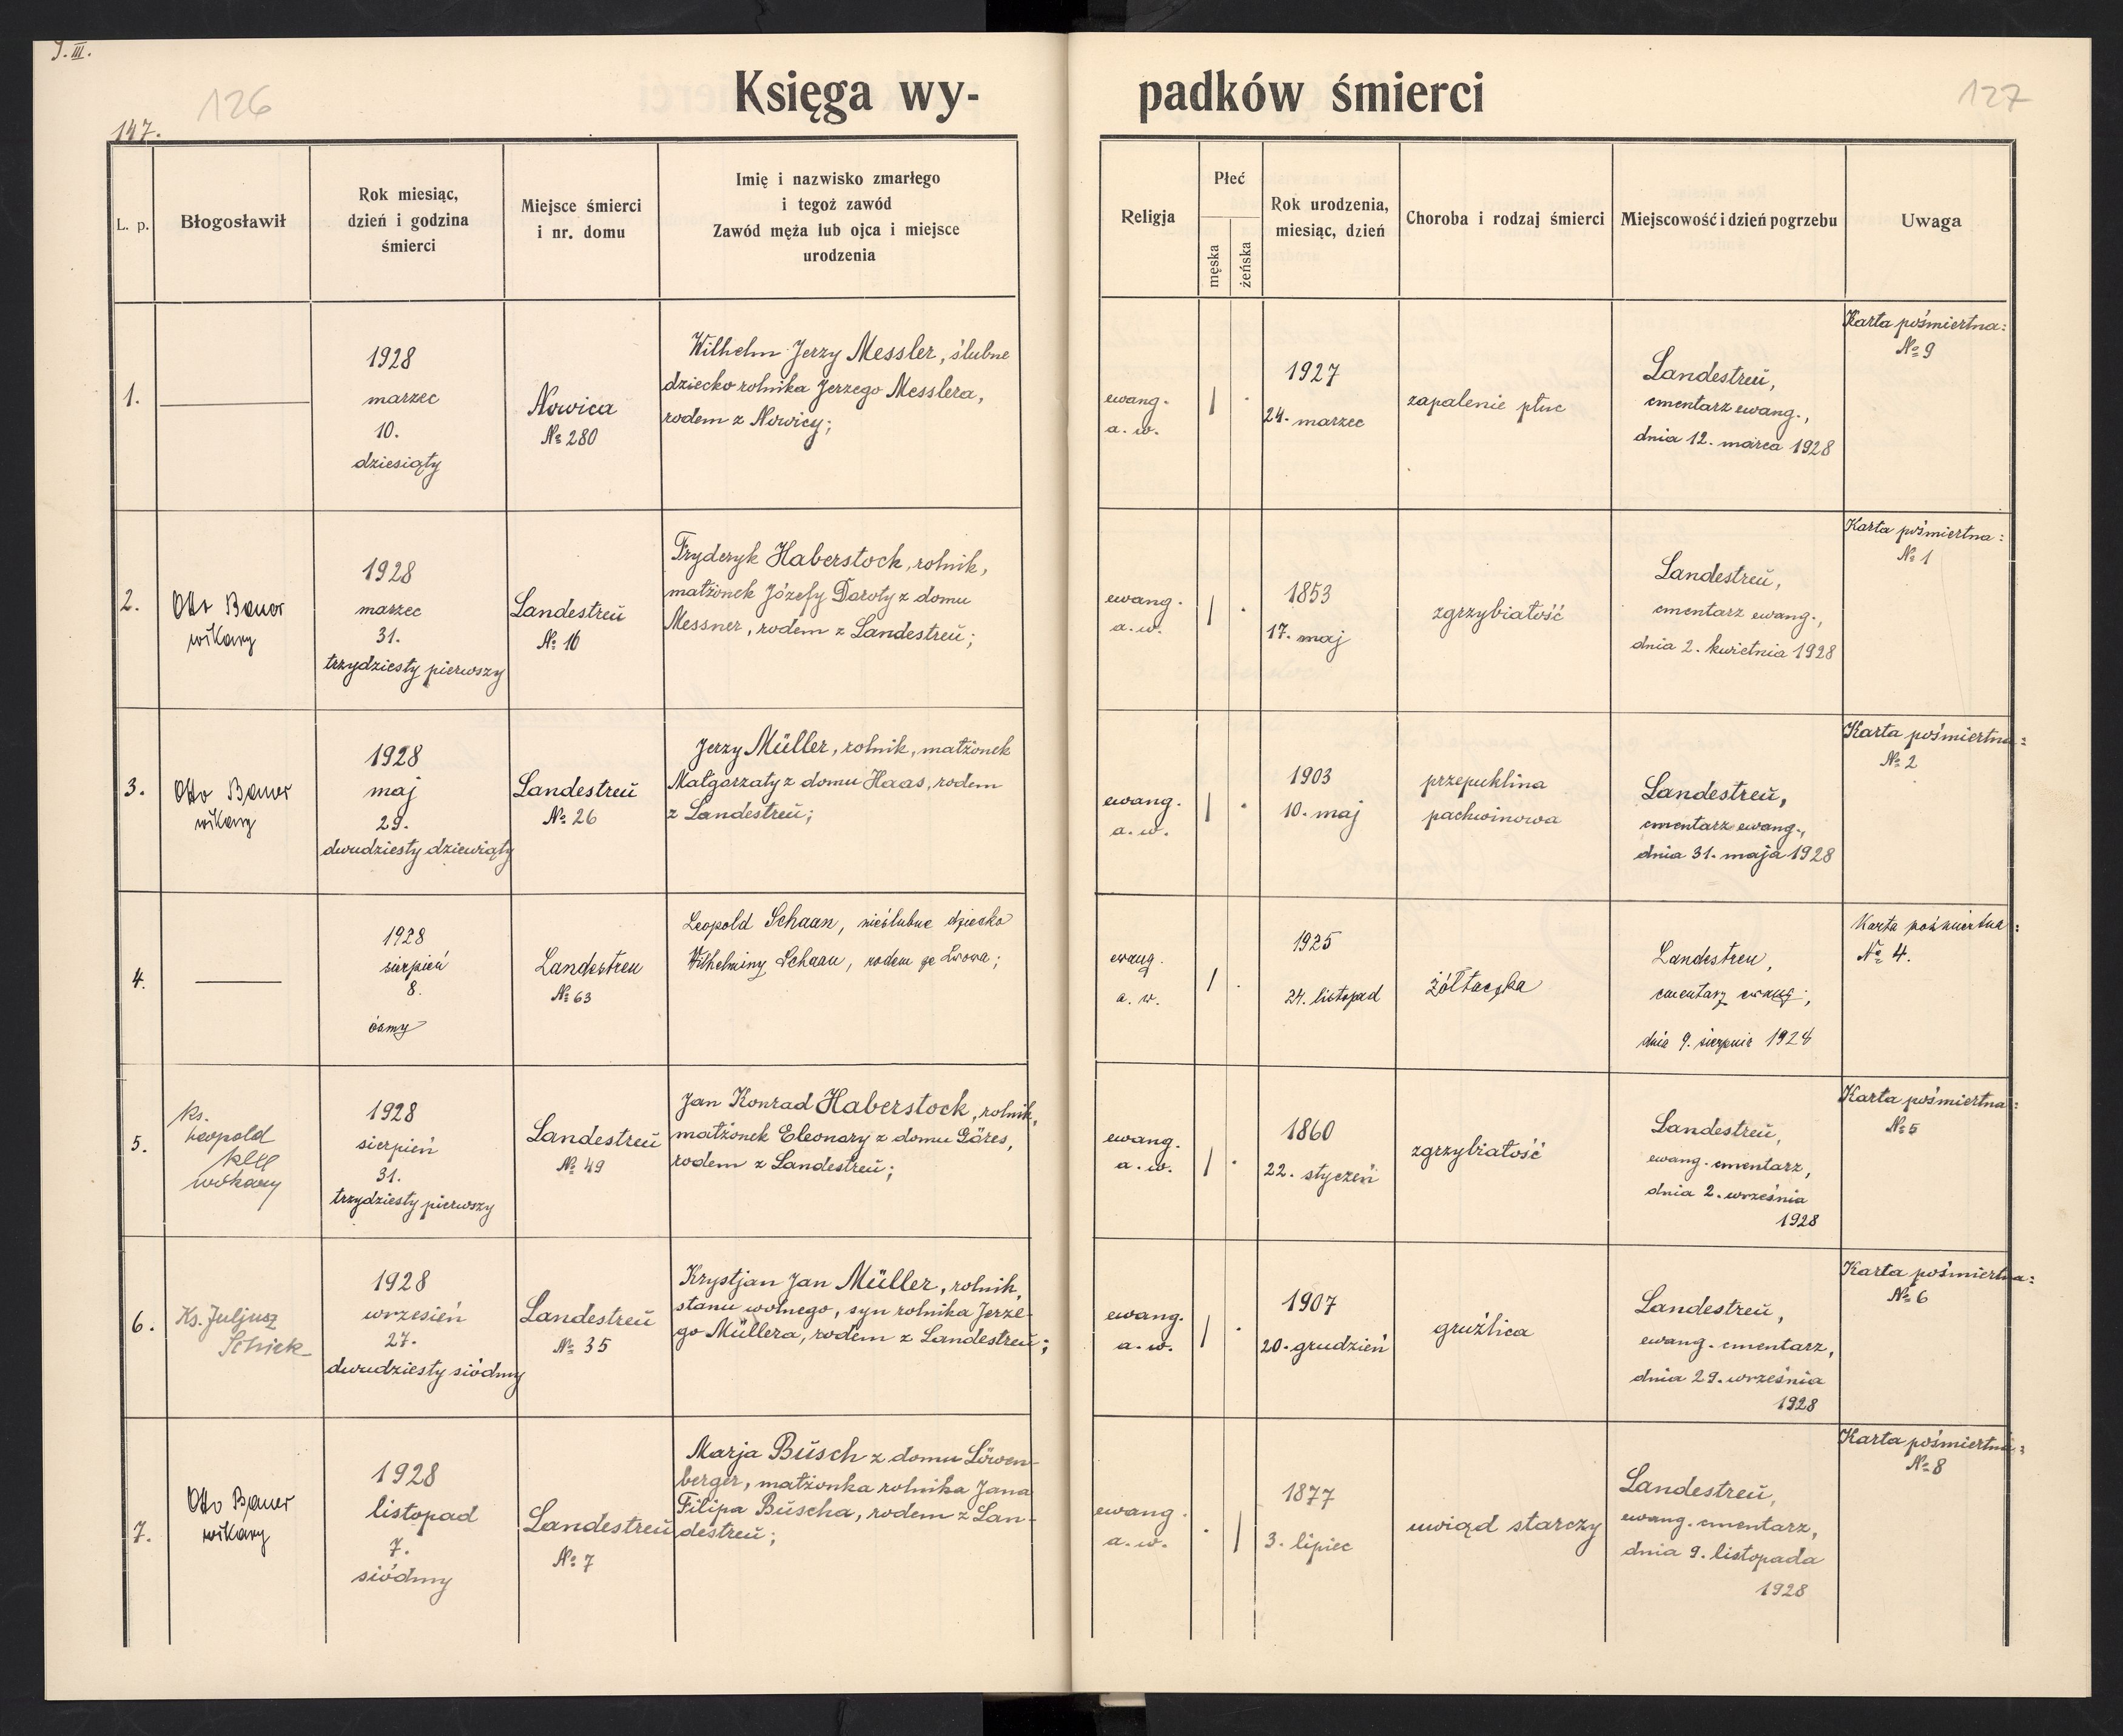 J. III.
126
127
147.
Księga wy-
padków śmierci
L. p.
Błogosławił
Rok miesiąc,
dzień i godzina
śmierci
Miejsce śmierci
i nr. domu
Imię i nazwisko zmarłego
i tegoż zawód
Zawód męża lub ojca i miejsce
urodzenia
Religja
Płeć
męska
żeńska
Rok urodzenia,
miesiąc, dzień
Choroba i rodzaj śmierci
Miejscowość i dzień pogrzebu
Uwaga
1.
1928
marzec
10.
dziesiąty
Nowica
№ 280
Wilhelm Jerzy Messler, ślubne
dziecko rolnika Jerzego Messlera,
rodem z Nowicy;
ewang.
a. w.
1927
24. marzec
zapalenie płuc
Landestreŭ,
cmentarz ewang.,
dnia 12. marca 1928
Karta pośmiertna:
№ 9
2.
Otto Bauer
wikary
1928
marzec
31.
trzydziesty pierwszy
Landestreŭ
№ 16
Fryderyk Haberstock, rolnik,
małżonek Józefy Doroty z domu
Messner, rodem z Landestreŭ;
ewang.
a. w.
1853
17. maj
zgrzybiałość
Landestreŭ,
cmentarz ewang.,
dnia 2. kwietnia 1928
Karta pośmiertna:
№ 1
3.
Otto Bauer
wikary
1928
maj
29.
dwudziesty dziewiąty
Landestreŭ
№ 26
Jerzy Müller, rolnik, małżonek
Małgorzaty z domu Haas, rodem
z Landestreŭ;
ewang.
a. w.
1903
10. maj
przepuklina
pachwinowa
Landestreŭ,
cmentarz ewang.,
dnia 31. maja 1928
Karta pośmiertna:
№ 2
4.
1928
sierpień
8.
ósmy
Landestreu
№ 63
Leopold Schaan, nieślubne dziecko
Wilhelminy Schaan, rodem ze Lwowa;
ewang.
a. w.
1925
24. listopad
żółtaczka
Landestreu,
cmentarz ewang.,
dnia 9. sierpnia 1928
Karta pośmiertna:
№ 4.
5.
ks.
Leopold
wikary
1928
sierpień
31.
trzydziesty pierwszy
Landestreŭ
№ 49
Jan Konrad Haberstock, rolnik,
małżonek Eleonory z domu Göres,
rodem z Landestreŭ;
ewang.
a. w.
1860
22. styczeń
zgrzybiałość
Landestreŭ,
ewang. cmentarz,
dnia 2. września
1928
Karta pośmiertna:
№ 5
6.
Ks. Juljusz
Schick
1928
wrzesień
27.
dwudziesty siódmy
Landestreŭ
№ 35
Krystjan Jan Müller, rolnik,
stanu wolnego, syn rolnika Jerze-
go Müllera, rodem z Landestreŭ;
ewang.
a. w.
1907
20. grudzień
gruźlica
Landestreŭ,
ewang. cmentarz,
dnia 29. września
1928
Karta pośmiertna:
№ 6
7.
Otto Bauer
wikary
1928
listopad
7.
siódmy
Landestreŭ
№ 7
Marja Bŭsch z domu Löwen-
berger, małżonka rolnika Jana
Filipa Bŭscha, rodem z Lan-
destreŭ;
ewang.
a. w.
1877
3. lipiec
uwiąd starczy
Landestreŭ,
ewang. cmentarz,
dnia 9. listopada
1928
Karta pośmiertna:
№ 8